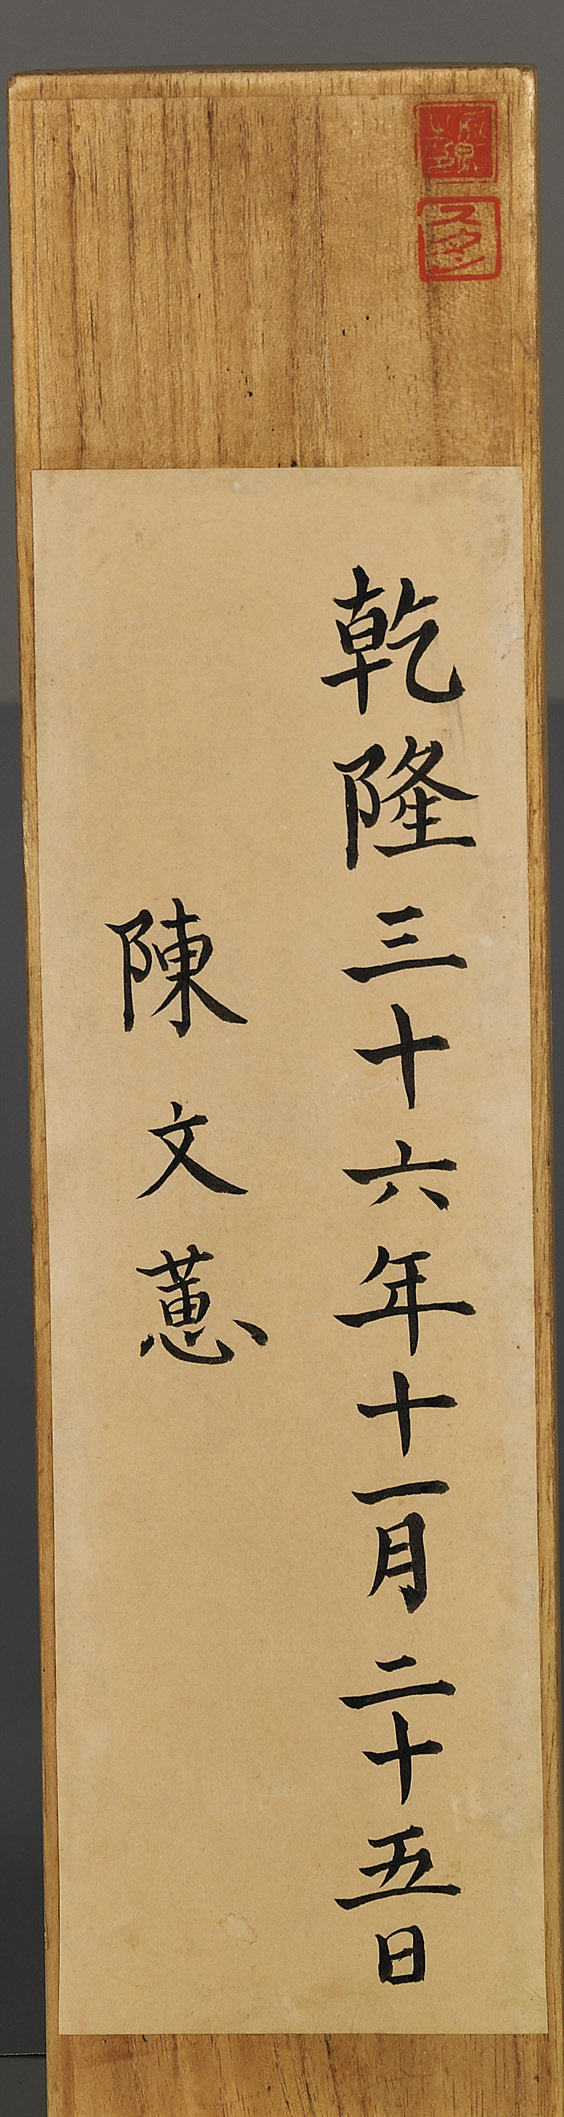 乾隆三十六年十一月二十五日
陳文蕙